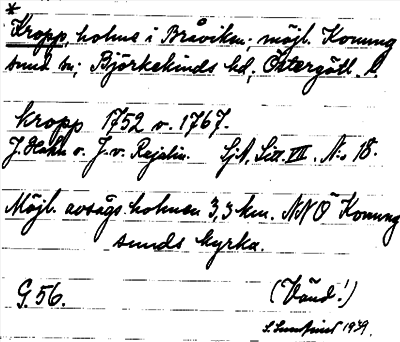 *
Kropp, holme i Bråviken; möjl. Konung
sund sn; Björkekinds hd, Östergötl. l.
kropp 1752 o. 1767.
J. Hahn o. J. v. Rajalin. SjA, Litt. VII, N:o 18.
Möjl. avsågs holmen 3,3 km. NNO Konung
sunds kyrka.
G. 56. (Vänd!)
1939.